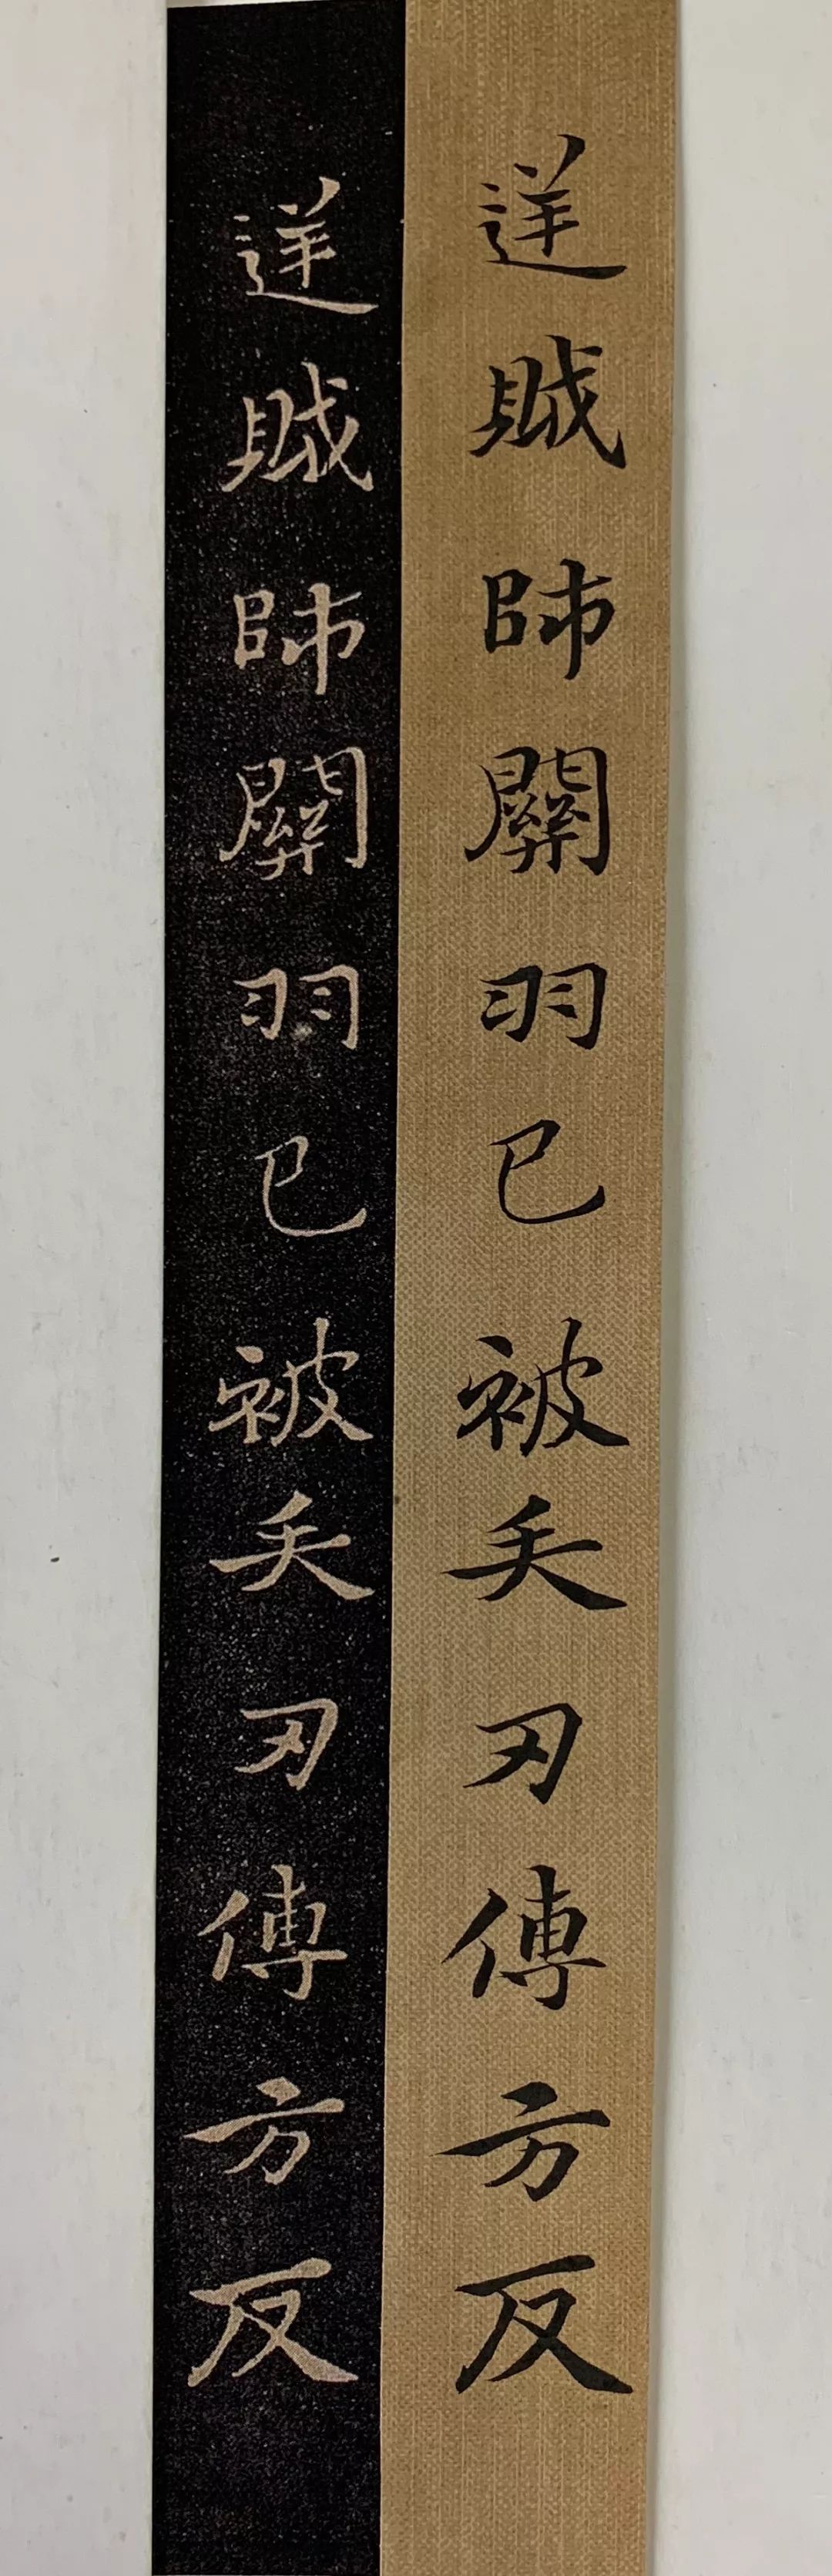 逆賊帥關羽已被矢刃傅方反
逆賊帥關羽已被矢刃傅方反